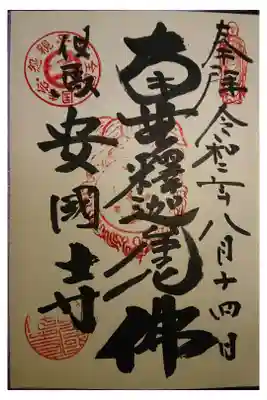 奉拝 令和二年八月十四日
南無釋迦牟尼佛
但馬 安國寺